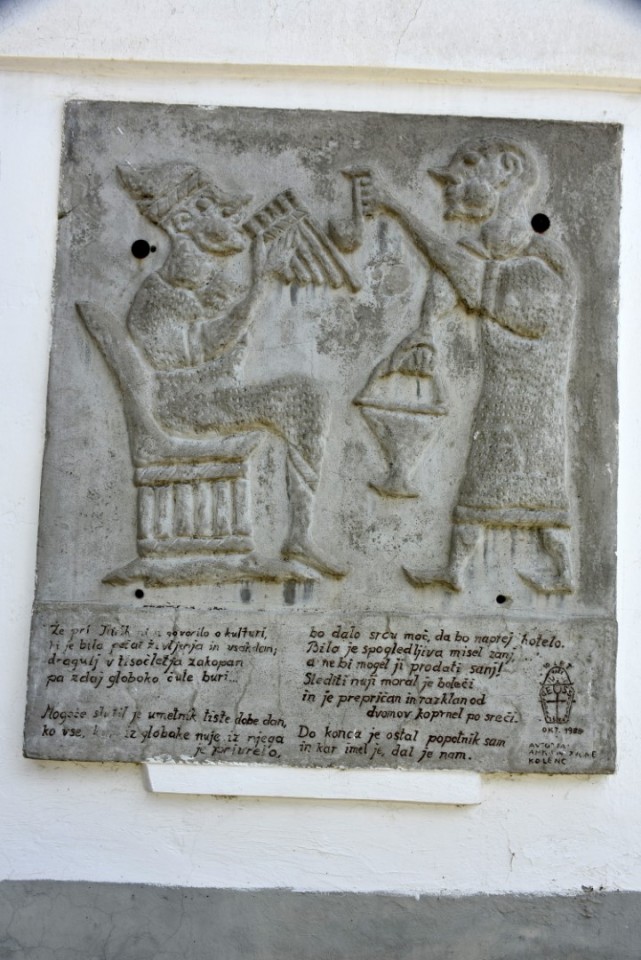 Že pri govorilo o kulturi,
ki je bila pečat življenja in vsakdanj;
dragulj v tisočletja zakopan
pa zdaj globoko čute buri...
Mogoče slutil je umetnik tiste dobe dan,
ko vse, kar iz globoke nuje iz njega
je privrelo,
bo dalo srcu moč, da bo naprej hotelo.
Bila je spogledljiva misel zanj,
a ne bi mogel ji prodati sanj!
Slediti nuji moral je boleči
in je prepričan in razklan od
dvomov koprnel po sreči.
Do konca je ostal popotnik sam
in kar imel je, dal je nam.
OKT. 1980
KOLENC